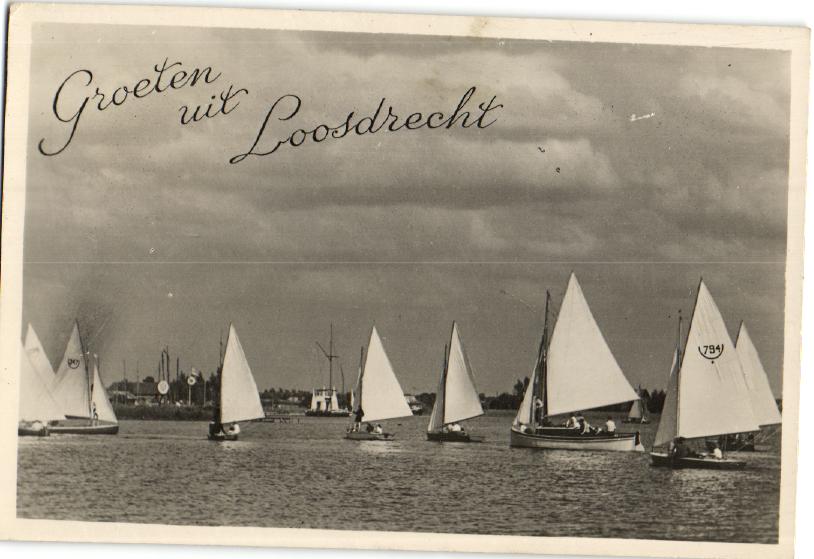 Groeten
uit
Loosdrecht
794